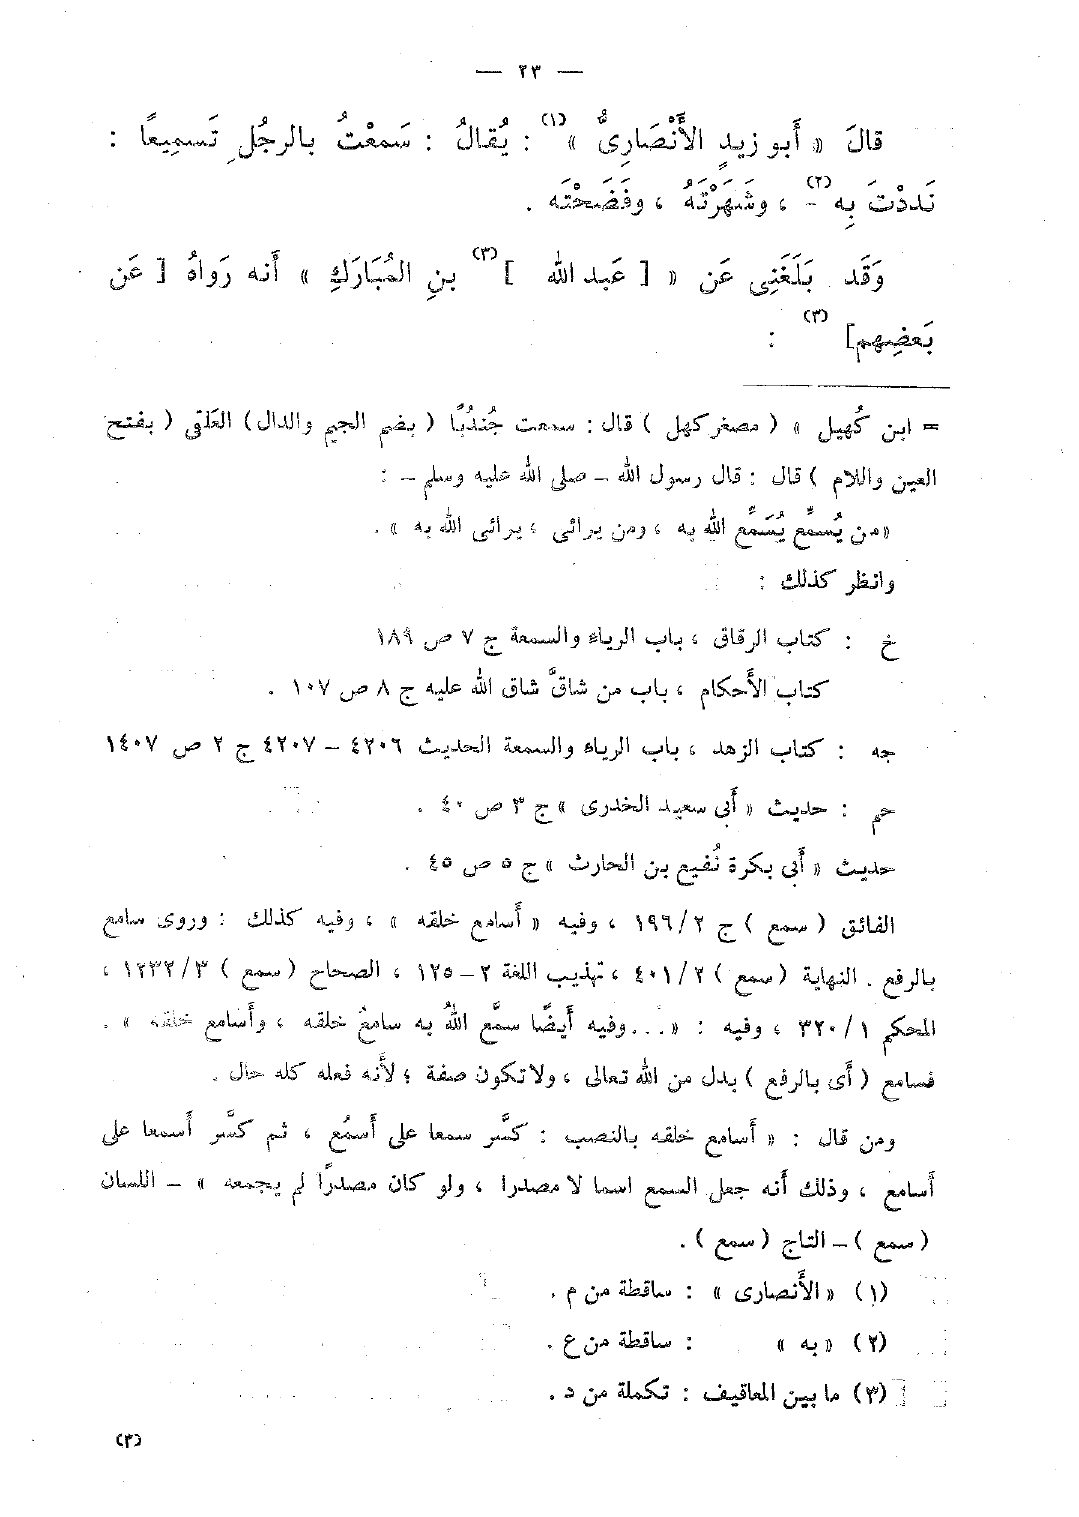 — ٢٣ —
قالَ « أَبو زيدٍ الأَنْصَارِىُّ »(١) : يُقالُ : سَمعْتُ بالرجُلِ تَسمِيعًا :
نَددْتَ بِه(٢) - ، وشَهَرْتَهُ ، وفَضَحْتَه .
وَقَد بَلَغَنِى عَن « [ عَبد الله ](٣) بنِ المُبَارَكِ » أَنه رَواهُ [ عَن
بَعضِهم](٣) :
= ابن كُهيل » ( مصغر كهل ) قال : سمعت جُندُبًا ( بضم الجيم والدال) العَلَقى ( بفتح
العين واللام ) قال : قال رسول الله – صلى الله عليه وسلم – :
«من يُسمِّع يُسَمِّع اللهُ به ، ومن يرائى ، يرائى الله به » .
وانظر كذلك :
خ : كتاب الرقاق ، باب الرياء والسمعة ج ٧ ص ١٨٩
كتاب الأَحكام ، باب من شاقَّ شاق الله عليه ج ٨ ص ١٠٧ .
جه : كتاب الزهد ، باب الرياء والسمعة الحديث ٤٢٠٦ – ٤٢٠٧ ج ٢ ص ١٤٠٧
حم : حديث « أَبى سعيد الخدرى » ج ٣ ص ٤٠ .
حديث « أَبى بكرة نُفيع بن الحارث » ج ٥ ص ٤٥ .
الفائق ( سمع ) ج ١٩٦/٢ ، وفيه « أَسامع خلقه » ، وفيه كذلك : وروى سامع
بالرفع . النهاية (سمع ) ٤٠١/٢ ، تهذيب اللغة ٢–١٢٥ ، الصحاح (سمع ) ١٢٣٢/٣ ،
المحكم ٣٢٠/١ ، وفيه : «...وفيه أَيضًا سمَّع اللهُ به سامعُ خلقه ، وأَسامع خلقه » .
فسامع ( أَى بالرفع ) بدل من الله تعالى ، ولا تكون صفة ؛ لأَنه فعله كله حال .
ومن قال : « أَسامع خلقه بالنصب : كسَّر سمعا على أَسمُع ، ثم كسَّر أَسمعا على
أَسامع ، وذلك أَنه جعل السمع اسما لا مصدرا ، ولو كان مصدرًا لم يجمعه » – اللسان
( سمع ) – التاج (سمع ) .
(١) «الأَنصارى » : ساقطة من م .
(٢) «به » : ساقطة من ع .
(٣) ما بين المعاقيف : تكملة من د .
(٣)